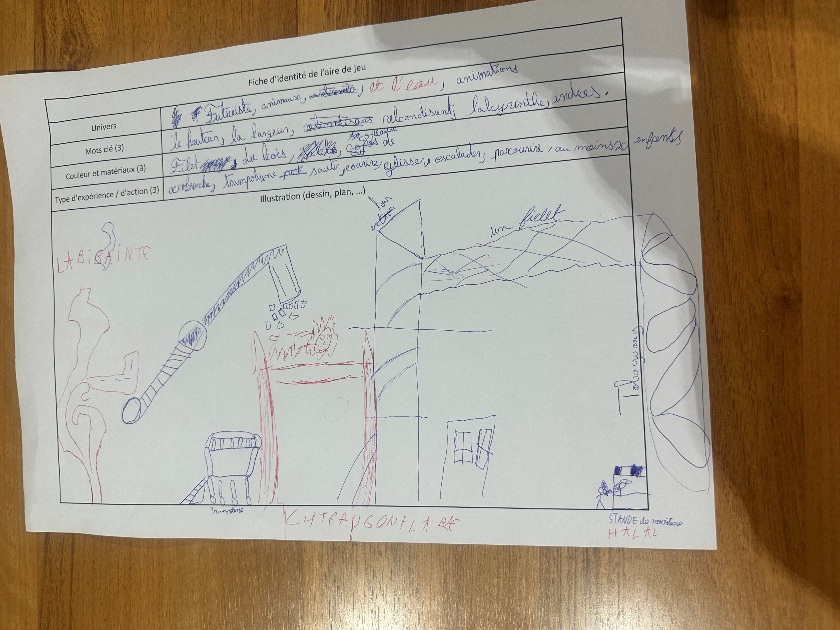 Fiche d'identité de l'aire de jeu
Univers
Futuriste, animaux, et l'eau, animations
Mots clé (3)
le hauteur, la largeur, labyrinthe, indices.
Couleur et matériaux (3)
Filet du bois,
Type d'expérience / d'action (3)
accrobranche, trampoline sauté, courir, glisser, escalader, parcourir, au moins enfants
Illustration (dessin, plan, ...)
un filet
LABIRAINTE
Toboguans
CHTEAUGONFLABE
STANDE de nourriture
HALAL